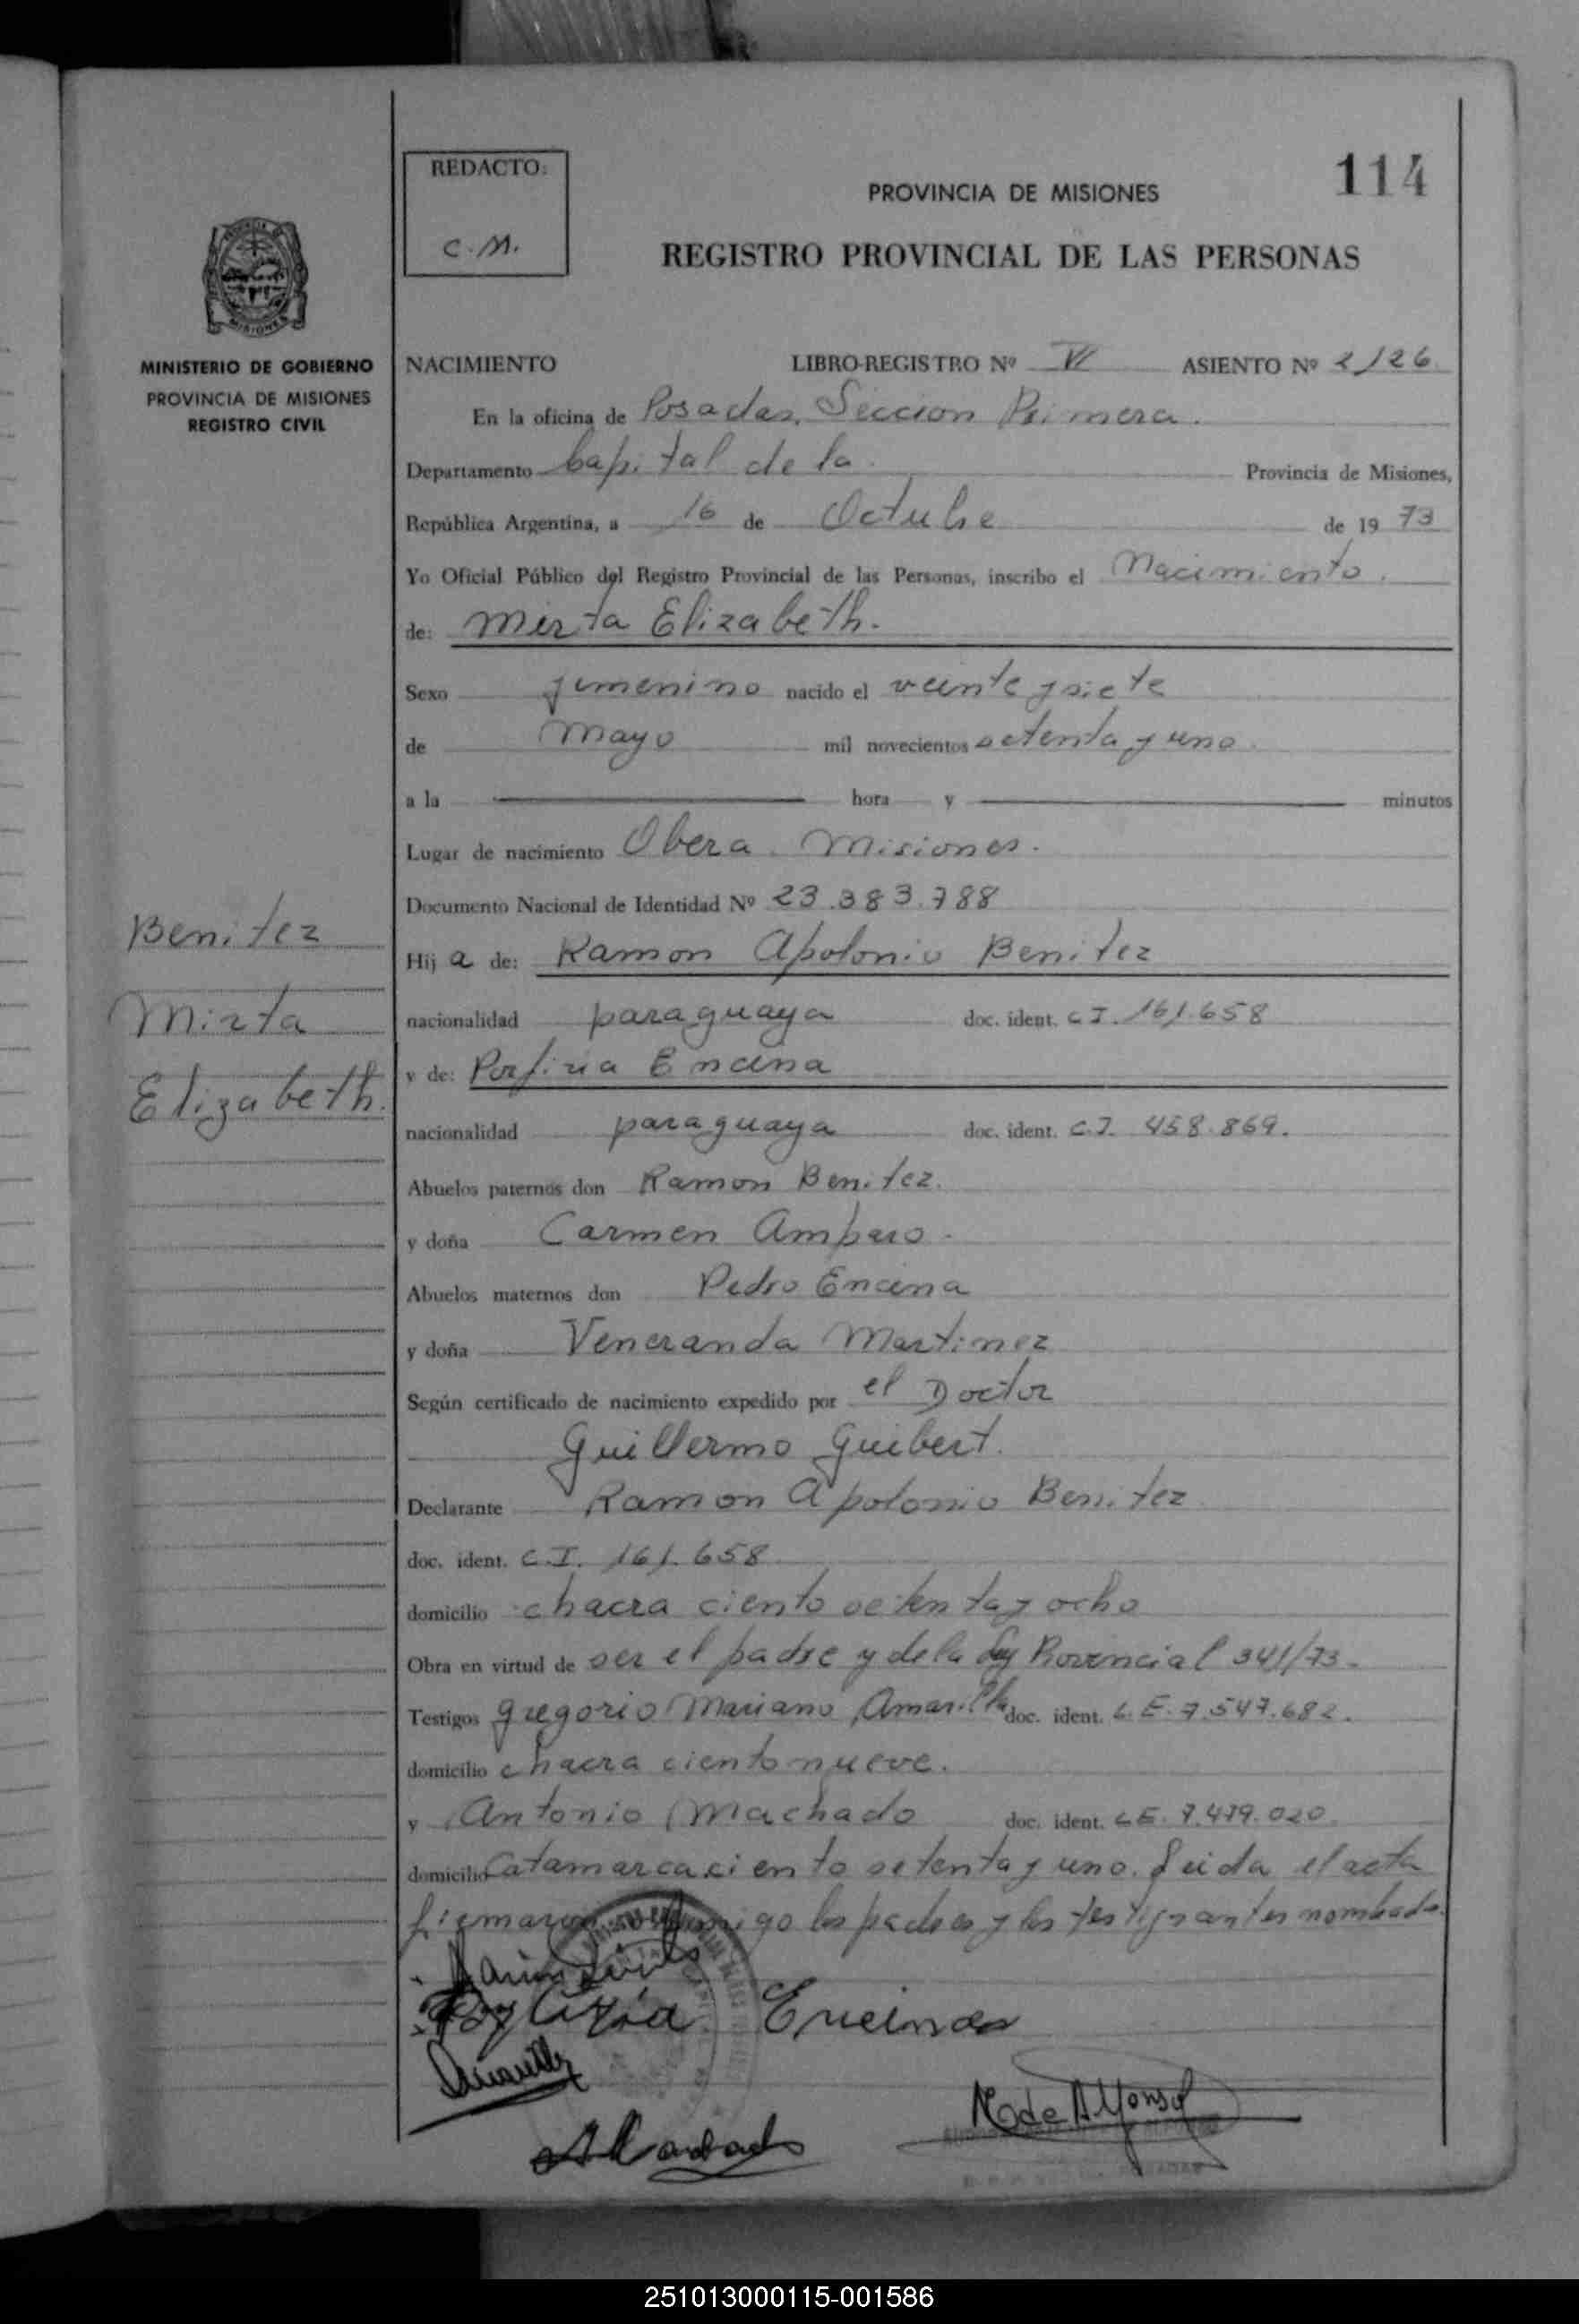 REDACTO:
C.M.
114
PROVINCIA DE MISIONES
REGISTRO PROVINCIAL DE LAS PERSONAS
MISIONES
MINISTERIO DE GOBIERNO
PROVINCIA DE MISIONES
REGISTRO CIVIL
NACIMIENTO LIBRO-REGISTRO Nº VI ASIENTO Nº 2126
En la oficina de Posadas, Seccion Primera.
Departamento Capital de la Provincia de Misiones,
República Argentina, a 16 de Octubre de 1973
Yo Oficial Público del Registro Provincial de las Personas, inscribo el Nacimiento.
de: Mirta Elizabeth.
Sexo femenino nacido el veinte y siete
de Mayo mil novecientos setenta y uno
a la hora y minutos
Lugar de nacimiento Obera Misiones.
Documento Nacional de Identidad Nº 23.383.788
Benitez
Mirta
Elizabeth.
Hij a de: Ramon Apolonio Benitez
nacionalidad paraguaya doc. ident. C I. 161.658
y de: Porfiria Encina
nacionalidad paraguaya doc. ident. C.I. 458.869.
Abuelos paternos don Ramon Benitez.
y doña Carmen Amparo.
Abuelos maternos don Pedro Encina
y doña Veneranda Martinez
Según certificado de nacimiento expedido por el Doctor
Guillermo Guibert.
Declarante Ramon Apolonio Benitez
doc. ident. C.I. 161.658
domicilio chacra ciento setenta y ocho
Obra en virtud de ser el padre y de la Ley Provincial 341/73.
Testigos Gregorio Mariano Amarilla doc. ident. L.E. 7.547.682.
domicilio chacra ciento nueve.
y Antonio Machado doc. ident. L E. 7.479.020
domicilio Catamarca ciento setenta y uno. Leida el acta
firmaron conmigo los padres y los testigos antes nombrado.
Porfiria Encina
N de Alfonso
251013000115-001586